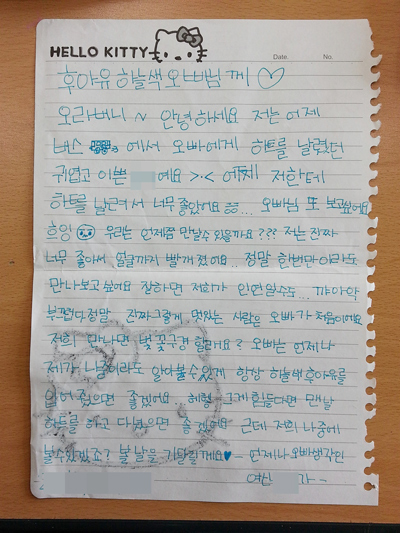 HELLO KITTY
Date. No.
후아유 하늘색 오빠님 께 ♡
오라버니 ~ 안녕하세요 저는 어제
버스 에서 오빠에게 하트를 날렸던
귀엽고 이쁜 예요 >.< 어제 저한테
하트를 날려서 너무 좋았어요 ... 오빠님 또 보고싶어요
흐잉 우리는 언제쯤 만날수 있을까요??? 저는 진짜
너무 좋아서 얼굴까지 빨개졌어요.. 정말 한번만이라도
만나보고 싶어요 잘하면 저희가 인연일수도... 꺄아악
부끄럽당 정말 진짜 그렇게 멋있는 사람은 오빠가 처음이에요
저희 만나면 벚꽃구경 할래요? 오빠는 언제나
제가 나날이라도 알아볼수있게 항상 하늘색 후아유를
입어 줬으면 좋겠어요.. 헤헿 그게 힘들다면 맨날
하트를 하고 다녔으면 좋겠어요 근데 저희 나중에
볼수있겠죠? 볼 날을 기달릴게요♥ - 언제나 오빠생각인
여신 가 -